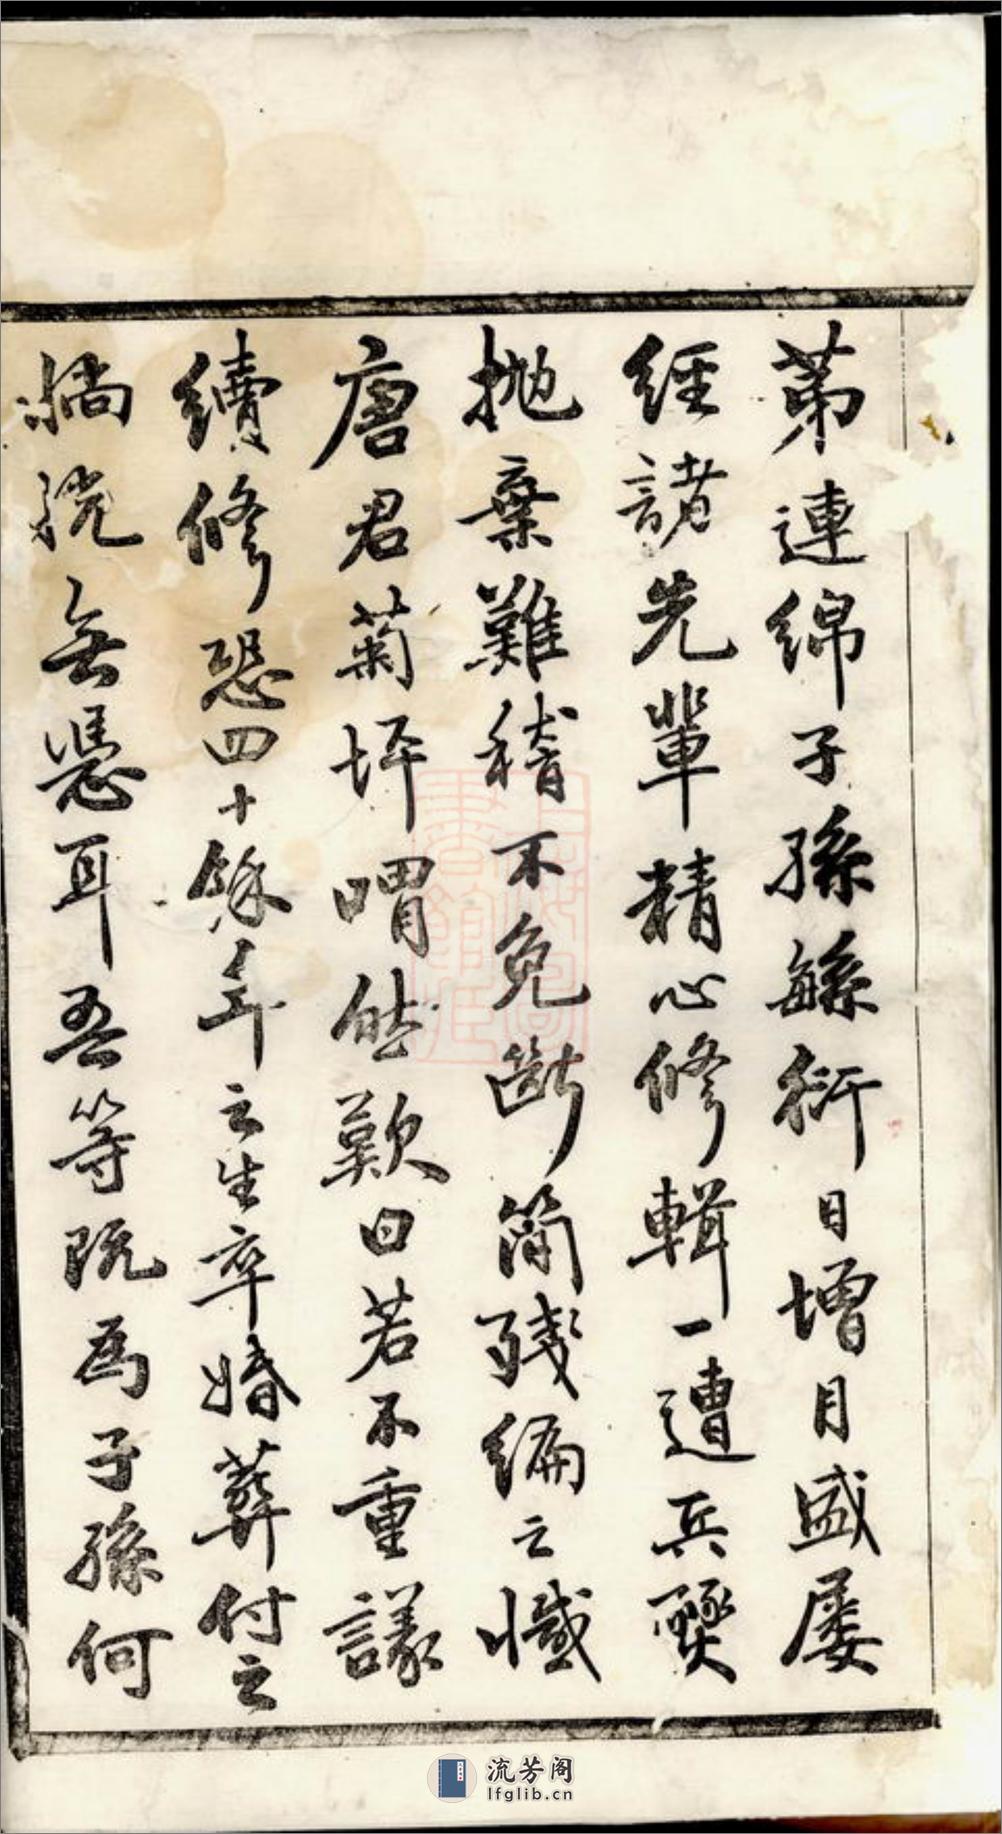 苐連綿子孫緐衍日增月盛屡
经諸先輩精心修輯一遭兵燹
抛棄難稽不免断简残编之憾
唐君菊坪喟然歎曰若不重議
續修恐四十餘年之生卒婚葬付之
無憑耳吾等既為子孫何
流芳阁
lfglib.cn